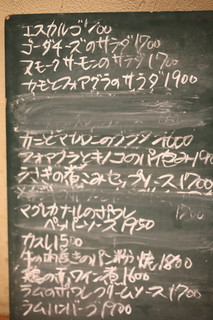 エスカルゴ 700
ゴーダチーズのサラダ 1700
スモークサーモンのサラダ 1700
カモとフォアグラのサラダ 1900
カニとマカロニのグラタン 1600
フォアグラとキノコのパイ包み 19
うさぎの煮込み セップソース 1700
マグレカナールのポワレ
ペッパーソース 1950
カスレ 1500
牛の パン粉焼 1800
鶏の赤ワイン煮 1600
ラムのポワレ クリームソース 1700
ラムハンバーグ 1700